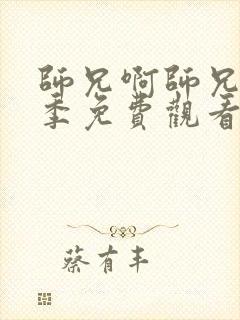 師兄啊師兄
季免費觀看
蔡有丰